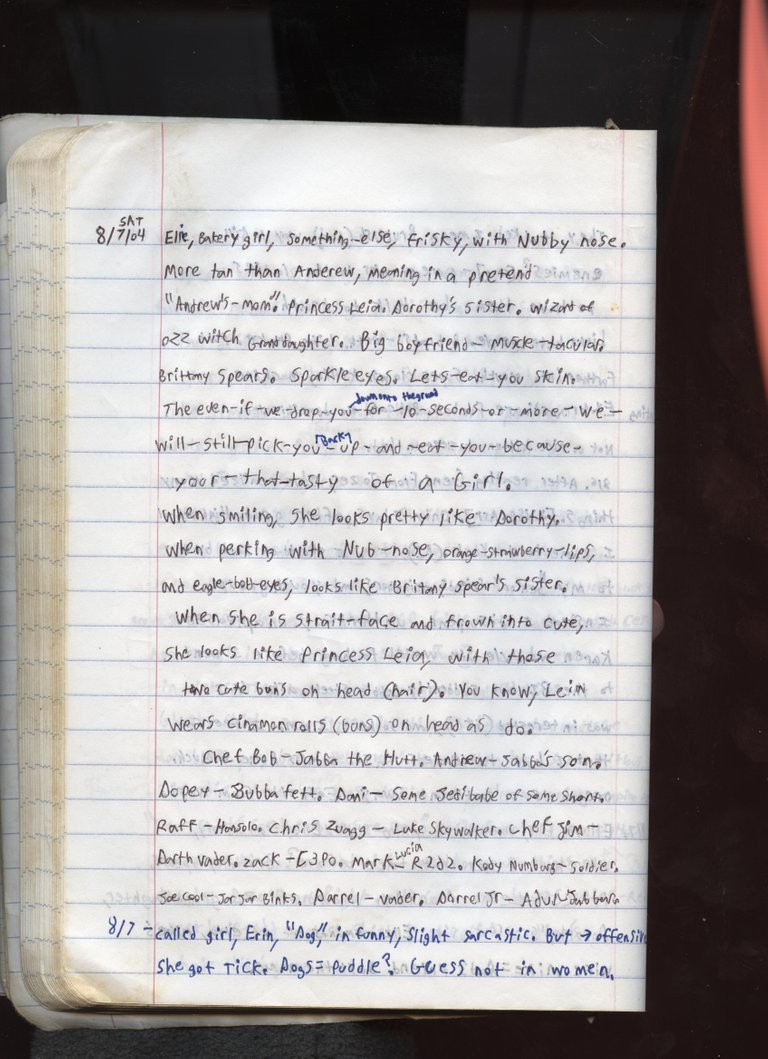 SAT
8/7/04 Elie, Bakery girl, something-else, frisky, with Nubby nose.
More tan than Anderew, meaning in a pretend
"Andrew's-mom". Princess Leia. Dorothy's sister. Wizard of
OZZ witch Granddaughter. Big boyfriend - muscle-tacular.
Brittany Spears. Sparkle eyes. Lets-eat-you skin.
down onto the ground
The even-if-we-drop-you-for-10-seconds-or-more-we-
will-still-pick-you-up-and-eat-you-because-
[Back]
your-that-tasty of a Girl.
When smiling, she looks pretty like Dorothy.
When perking with Nub-nose, orange-strawberry-lips,
and eagle-bob-eyes, looks like Britany Spear's sister.
When she is strait-face and frown into cute,
she looks like Princess Leia, with those
two cute buns on head (hair). You know, Leia
wears cinamon rolls (buns) on head as do.
Chef Bob - Jabba the Hutt. Andrew - Jabba's son.
Dopey - Bubba fett. Dani - some Jedi babe of some short.
Raff - Hansolo. Chris Zuagg - Luke Skywalker. Chef Jim -
Darth Vader. Zack - C3PO. Mark - R2d2. Kody Numbarg - Soldier.
Lucia
Joe Cool - Jar Jar Binks. Darrel - Vader. Darrel Jr -
8/7 - called girl, Erin, "Dog," in funny, slight sarcastic. But → offensiv
She got TICK. Dogs = Puddle? Guess not in women.